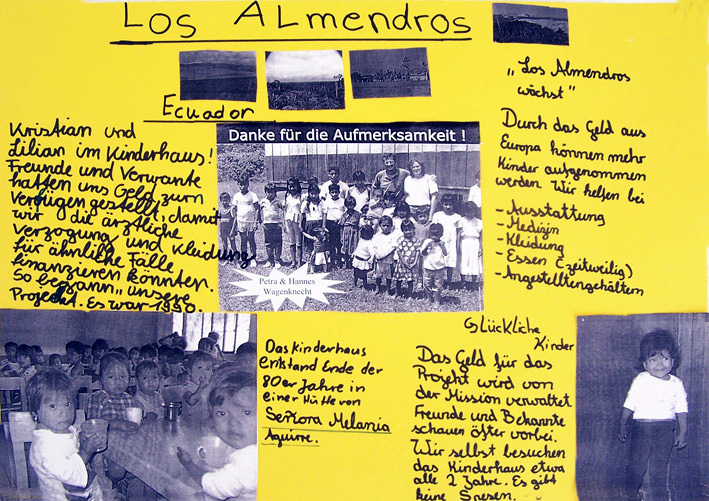 Los Almendros
Ecuador
Kristian und
Lilian im Kinderhaus!
Freunde und Verwante
hatten uns Geld zum
Verfügen gestellt, damit
wir die ärztliche
Verzogung und Kleidung
für ähnliche Fälle
finanzieren könnten.
So begann „unsere
Projekt. Es war 1990.
Danke für die Aufmerksamkeit !
Petra & Hannes
Wagenknecht
„Los Almendros
wächst"
Durch das Geld aus
Europa können mehr
Kinder aufgenommen
werden. Wir helfen bei
- Ausstattung
- Medizin
- Kleidung
- Essen (zeitweilig)
- Angestelltengehältern
Das Kinderhaus
entstand Ende der
80er Jahre in
einer Hütte von
Señora Melania
Aguirre.
Glückliche
Kinder
Das Geld für das
Projekt wird von
der Mission verwaltet.
Freunde und Bekannte
schauen öfter vorbei.
Wir selbst besuchen
das Kinderhaus etwa
alle 2 Jahre. Es gibt
keine Spesen.